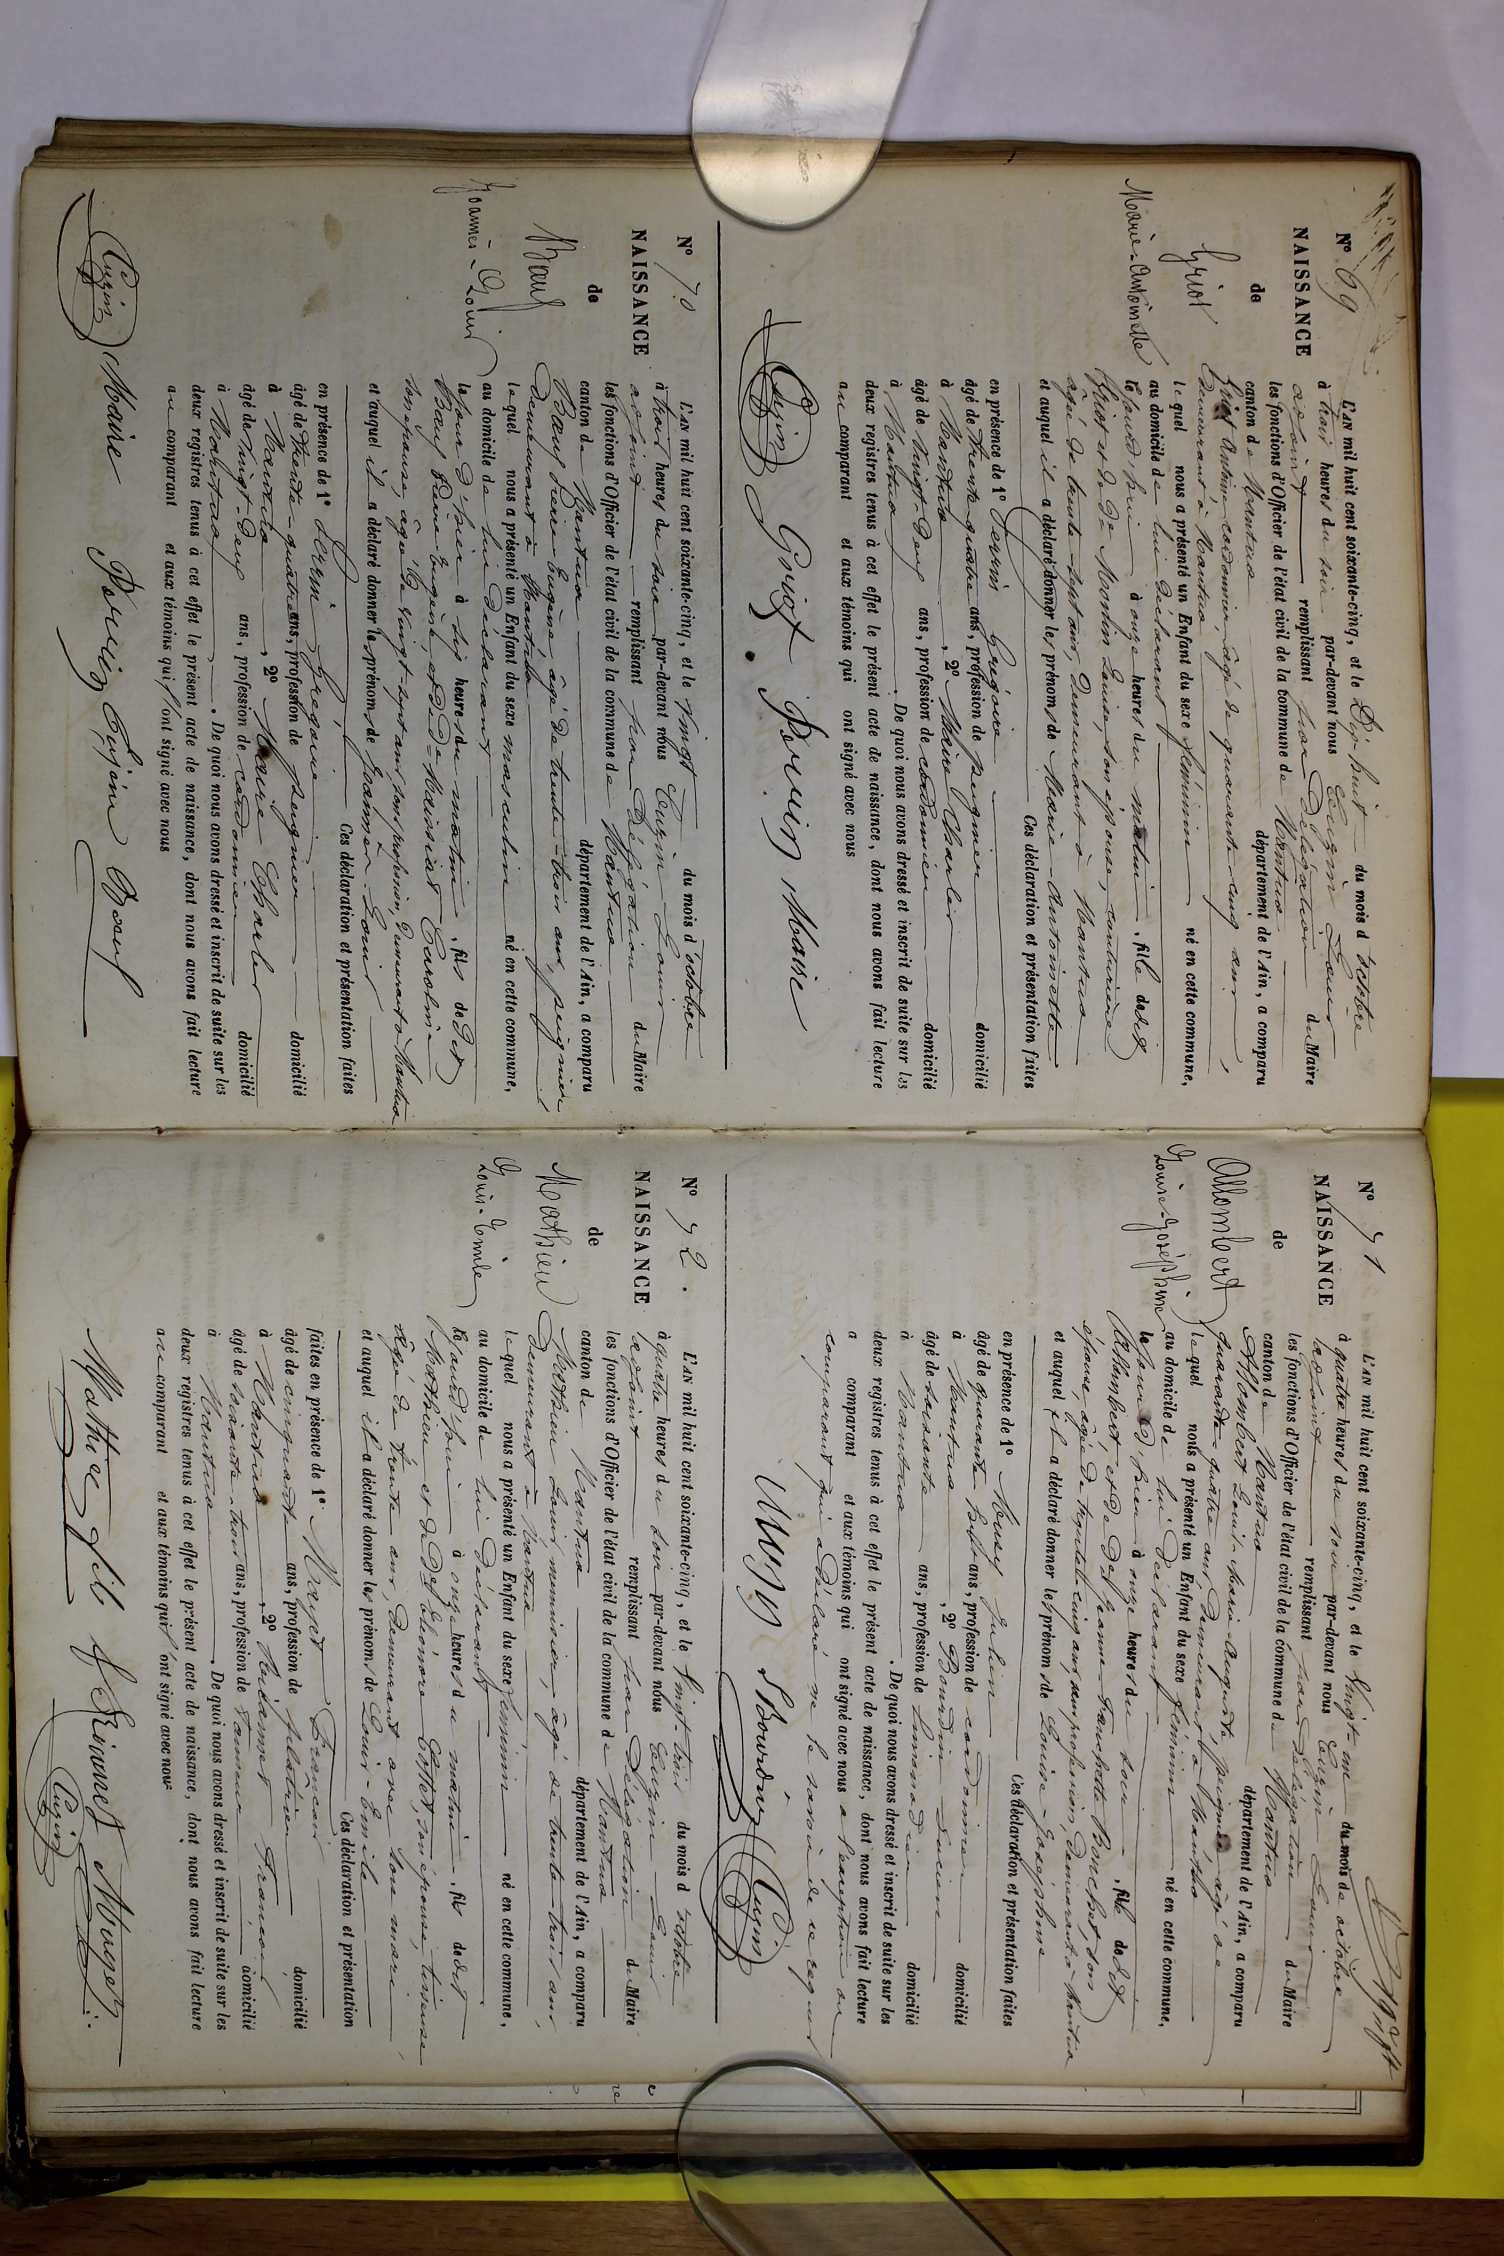 N° 69
NAISSANCE
de
Griot
Marie-Antoinette
L'AN mil huit cent soixante-cinq, et le Dix huit du mois d'octobre
à trois heures du soir par-devant nous Cuzin Louis
adjoint remplissant par Délégation du Maire
les fonctions d'Officier de l'état civil de la commune de Nantua
canton de Nantua département de l'Ain, a comparu
Griot cordonnier, âgé de quarante cinq ans,
demeurant à Nantua
lequel nous a présenté un Enfant du sexe féminin né en cette commune,
au domicile de lui déclarant
le jourd'hui à onze heures du matin, fille dudit
Griot et de De Monlin Louise, son épouse, couturière
âgée de trente sept ans, demeurant à Nantua
et auquel il a déclaré donner les prénoms de Marie-Antoinette
Ces déclaration et présentation faites
en présence de 1° Perrin Grégoire
âgé de trente quatre ans, profession de peignier domicilié
à Nantua, 2° Maire Charles
âgé de vingt-deux ans, profession de cordonnier domicilié
à Nantua. De quoi nous avons dressé et inscrit de suite sur les
deux registres tenus à cet effet le présent acte de naissance, dont nous avons fait lecture
au comparant et aux témoins qui ont signé avec nous
Cuzin Griot Perrin Maire
N° 70
NAISSANCE
de
Bœuf
Joannès-Louis
L'AN mil huit cent soixante-cinq, et le vingt du mois d'octobre
à trois heures du soir par-devant nous Cuzin Louis
adjoint remplissant par Délégation du Maire
les fonctions d'Officier de l'état civil de la commune de Nantua
canton de Nantua département de l'Ain, a comparu
Bœuf Pierre Eugène âgé de trente-trois ans, peignier
demeurant à Nantua
lequel nous a présenté un Enfant du sexe masculin né en cette commune,
au domicile de lui déclarant
le jour d'hier à six heures du matin, fils de Dit
Bœuf Pierre Eugène, et de De Maissiat Caroline
son épouse, âgée de vingt-sept ans sans profession, demeurant à Nantua
et auquel il a déclaré donner les prénoms de Joannès-Louis
Ces déclaration et présentation faites
en présence de 1° Perrin Gregoire
âgé de trente-quatre ans, profession de peignier domicilié
à Nantua, 2° Maire Charles
âgé de vingt-deux ans, profession de cordonnier domicilié
à Nantua. De quoi nous avons dressé et inscrit de suite sur les
deux registres tenus à cet effet le présent acte de naissance, dont nous avons fait lecture
au comparant et aux témoins qui ont signé avec nous
Cuzin Maire Perrin Eugène Bœuf
N° 71
NAISSANCE
de
Allombert
Louise-Joséphine
L'AN mil huit cent soixante-cinq, et le vingt-un du mois de octobre
à quatre heures du soir par-devant nous Cuzin Louis
adjoint remplissant par délégation du Maire
les fonctions d'Officier de l'état civil de la commune de Nantua
canton de Nantua département de l'Ain, a comparu
Allombert Louis-Marie-Auguste, peignier, âgé de
quarante-quatre ans, demeurant à Nantua
lequel nous a présenté un Enfant du sexe féminin né en cette commune,
au domicile de lui déclarant
le jour d'hier à onze heures du soir, fille dudit
Allombert et de De Jeanne Franchette Ponchet, son
épouse, âgée de trente-cinq ans, sans profession, demeurant à Nantua
et auquel il a déclaré donner les prénoms de Louise-Joséphine
Ces déclaration et présentation faites
en présence de 1° Moussy Julien
âgé de quarante huit ans, profession de cordonnier domicilié
à Nantua, 2° Bourdin Lucien
âgé de soixante ans, profession de limonadier domicilié
à Nantua. De quoi nous avons dressé et inscrit de suite sur les
deux registres tenus à cet effet le présent acte de naissance, dont nous avons fait lecture
a comparant et aux témoins qui ont signé avec nous a l'exception du
comparant qui a déclaré ne le savoir de ce requis
Bourdin Cuzin
N° 72.
NAISSANCE
de
Mathieu
Louis-Emile
L'AN mil huit cent soixante-cinq, et le vingt-trois du mois d'octobre
à quatre heures du soir par-devant nous Cuzin Louis
adjoint remplissant par Délégation du Maire
les fonctions d'Officier de l'état civil de la commune de Nantua
canton de Nantua département de l'Ain, a comparu
Mathieu Louis menuisier, âgé de trente-trois ans,
demeurant à Nantua
lequel nous a présenté un Enfant du sexe féminin né en cette commune,
au domicile de lui déclarant
le jourd'hui à onze heures du matin, fils dudit
Mathieu et de De son épouse, tisseuse
âgée de trente ans, demeurant avec son mari,
et auquel il a déclaré donner les prénoms de Louis-Emile
Ces déclaration et présentation
faites en présence de 1° Mayet François
âgé de cinquante ans, profession de domicilié
à Nantua, 2° François
âgé de soixante-trois ans, profession de domicilié
à Nantua. De quoi nous avons dressé et inscrit de suite sur les
deux registres tenus à cet effet le présent acte de naissance, dont nous avons fait lecture
au comparant et aux témoins qui ont signé avec nous
Mathieu fils Mayet
Cuzin